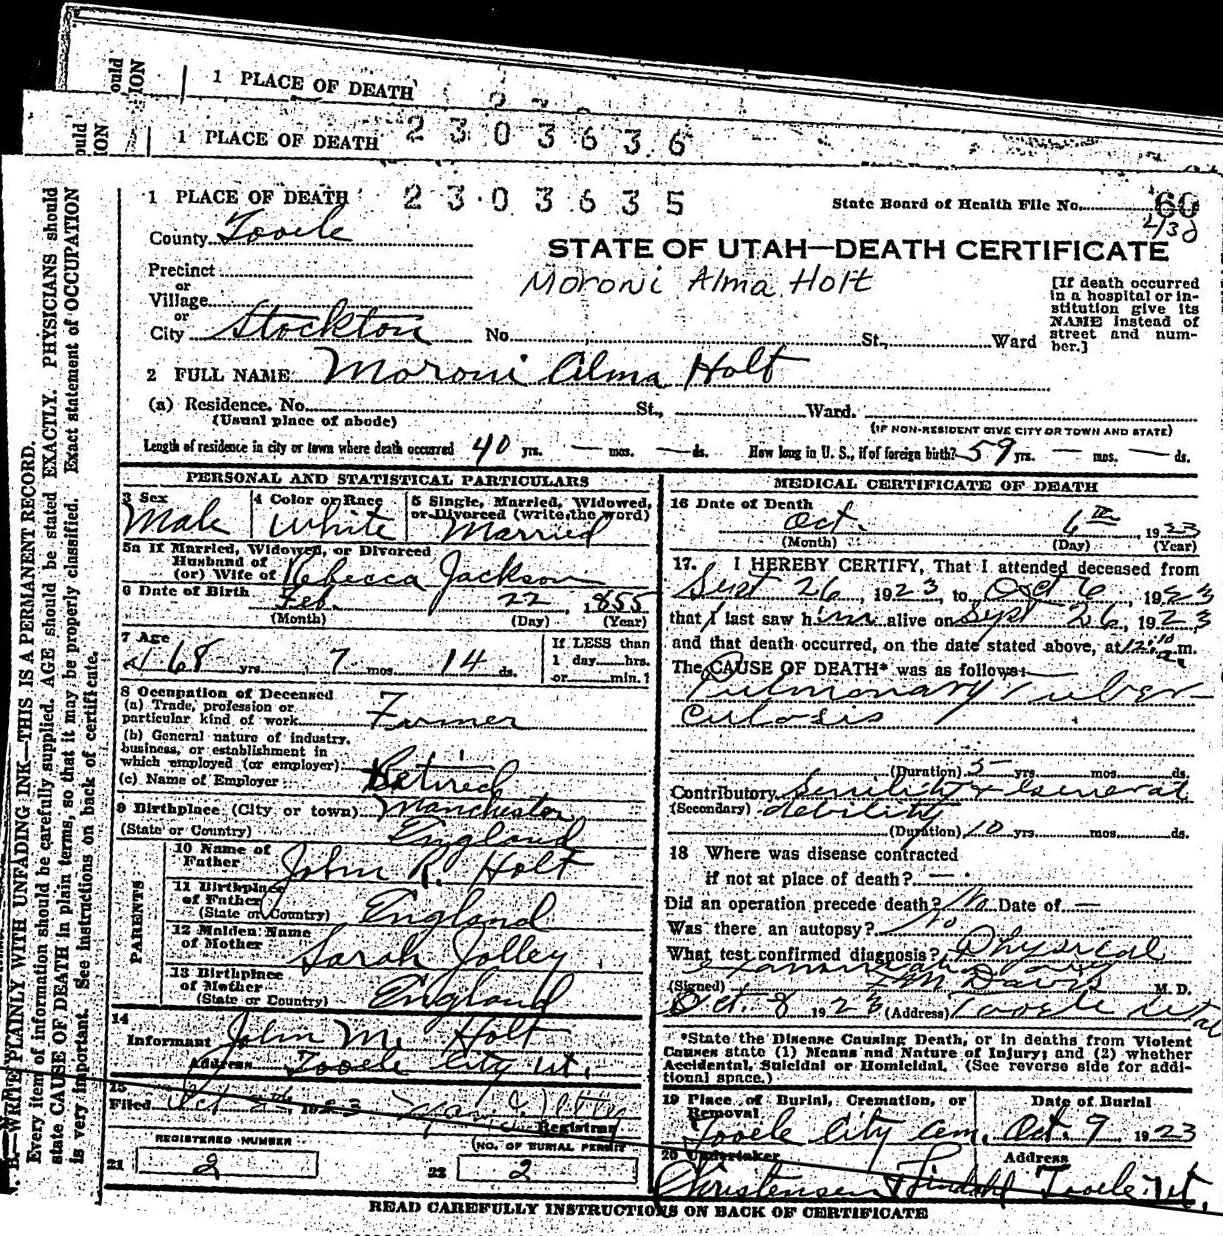 1 PLACE OF DEATH
1 PLACE OF DEATH 2303636
1 PLACE OF DEATH 2303635
State Board of Health File No. 60
County Tooele
STATE OF UTAH—DEATH CERTIFICATE
Precinct
or
Village
or
City Stockton
Moroni Alma Holt
No. St., Ward
[If death occurred
in a hospital or in-
stitution give its
NAME instead of
street and num-
ber.]
2 FULL NAME Moroni Alma Holt
(a) Residence. No. St., Ward.
(Usual place of abode)
(IF NON-RESIDENT GIVE CITY OR TOWN AND STATE)
Length of residence in city or town where death occurred 40 yrs. — mos. — ds. How long in U. S., if of foreign birth? 59 yrs. — mos. — ds.
PERSONAL AND STATISTICAL PARTICULARS
3 Sex
Male
4 Color or Race
White
5 Single, Married, Widowed,
or Divorced (write the word)
Married
5a If Married, Widowed, or Divorced
Husband of
(or) Wife of Rebecca Jackson
6 Date of Birth Feb. 22, 1855
(Month) (Day) (Year)
7 Age
68 yrs. 7 mos. 14 ds.
If LESS than
1 day hrs.
or min.?
8 Occupation of Deceased
(a) Trade, profession or
particular kind of work Farmer
(b) General nature of industry,
business, or establishment in
which employed (or employer) Retired
(c) Name of Employer
9 Birthplace (City or town) Manchester
(State or Country) England
PARENTS
10 Name of
Father John R. Holt
11 Birthplace
of Father
(State or Country) England
12 Maiden Name
of Mother Sarah Jolley
13 Birthplace
of Mother
(State or Country) England
14
Informant John M. Holt
Address Tooele City Ut.
15
Filed Oct 1923
Registrar
REGISTERED NUMBER
21 2
(NO. OF BURIAL PERMIT
22 2
MEDICAL CERTIFICATE OF DEATH
16 Date of Death
Oct. 6th, 1923
(Month) (Day) (Year)
17. I HEREBY CERTIFY, That I attended deceased from
Sept 26, 1923, to Oct 6, 1923
that I last saw him alive on Sept 26, 1923
and that death occurred, on the date stated above, at 12:10 a.m.
The CAUSE OF DEATH* was as follows:
Pulmonary Tuber-
culosis
(Duration) 5 yrs. mos. ds.
Contributory Senility & General
(Secondary) debility
(Duration) 10 yrs. mos. ds.
18 Where was disease contracted
if not at place of death? —
Did an operation precede death? No Date of —
Was there an autopsy? No
What test confirmed diagnosis? Physical
examination
(Signed) Davis M. D.
Oct. 8 1923 (Address) Tooele Utah
*State the Disease Causing Death, or in deaths from Violent
Causes state (1) Means and Nature of Injury; and (2) whether
Accidental, Suicidal or Homicidal. (See reverse side for addi-
tional space.)
19 Place of Burial, Cremation, or
Removal
Tooele City Cem.
Date of Burial
Oct. 9 1923
20 Undertaker
Christensen Lindahl
Address
Tooele Ut.
READ CAREFULLY INSTRUCTIONS ON BACK OF CERTIFICATE
N. B.—WRITE PLAINLY, WITH UNFADING INK—THIS IS A PERMANENT RECORD.
Every item of information should be carefully supplied. AGE should be stated EXACTLY. PHYSICIANS should
state CAUSE OF DEATH in plain terms, so that it may be properly classified. Exact statement of OCCUPATION
is very important. See instructions on back of certificate.